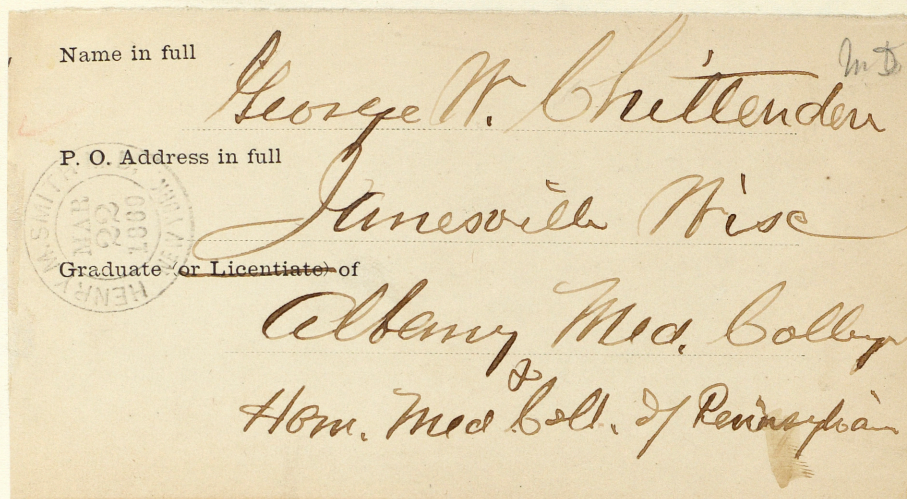 Name in full
George W. Chittenden
M D
P. O. Address in full
Janesville Wisc
HENRY M. SMITH
MAR
22
Graduate (or Licentiate) of
Albany Med. College
&
Hom. Med Coll. of Pennsylvania